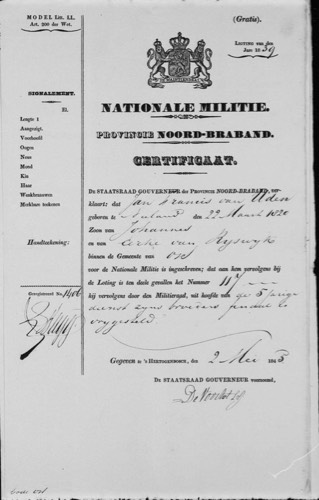 MODEL Litt. LL.
Art. 200 der Wet.
(Gratis).
LIGTING van den
Jare 1839
SIGNALEMENT.
El.
Lengte 1
Aangezigt,
Voorhoofd
Oogen
Neus
Mond
Kin
Haar
Wenkbraauwen
Merkbare teekenen
Handteekening:
Geregistreerd No. 1406
NATIONALE MILITIE.
PROVINCIE NOORD-BRABAND.
CERTIFICAAT.
DE STAATSRAAD GOUVERNEUR der PROVINCIE NOORD-BRABAND, ver-
klaart: dat Jan Francis van Uden
geboren te Nuland den 22 Maart 1820
Zoon van Johannes
en van van Ryswyk
binnen de Gemeente van Oss
voor de Nationale Militie is ingeschreven; dat aan hem vervolgens bij
de Loting is ten deele gevallen het Nummer 117
en hij vervolgens door den Militieraad, uit hoofde van
dienst zyns broeders
vrygesteld
Gegeven te 's HERTOGENBOSCH, den 2 Mei 1843
DE STAATSRAAD GOUVERNEUR voornoemd,